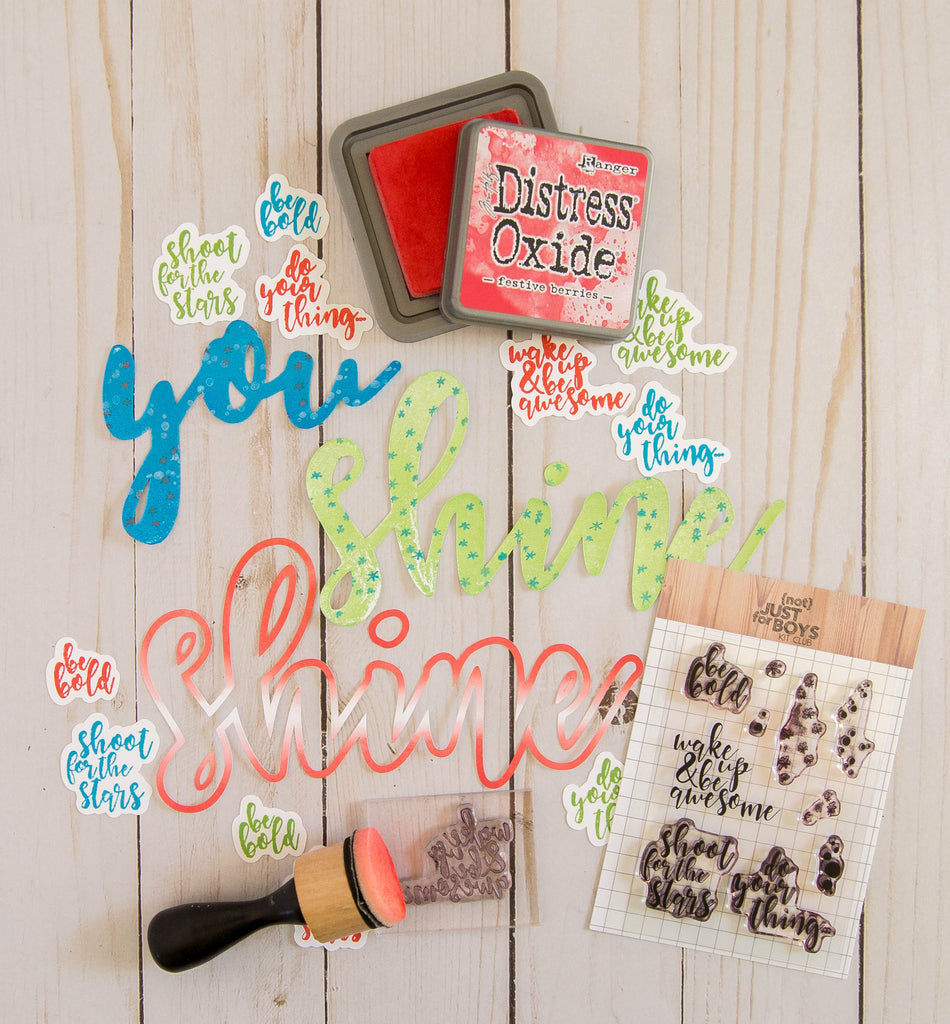 Ranger
Distress
Oxide
– festive berries –
be
bold
shoot
for the
stars
do
your
thing...
wake
up
& be
awesome
wake
up
& be
awesome
do
your
thing...
you
shine
shine
be
bold
shoot
for the
stars
be
bold
do
your
{not}
JUST
for BOYS
KIT CLUB
be
bold
wake
up
& be
awesome
shoot
for the
stars
do
your
thing...
wake
up
& be
awesome